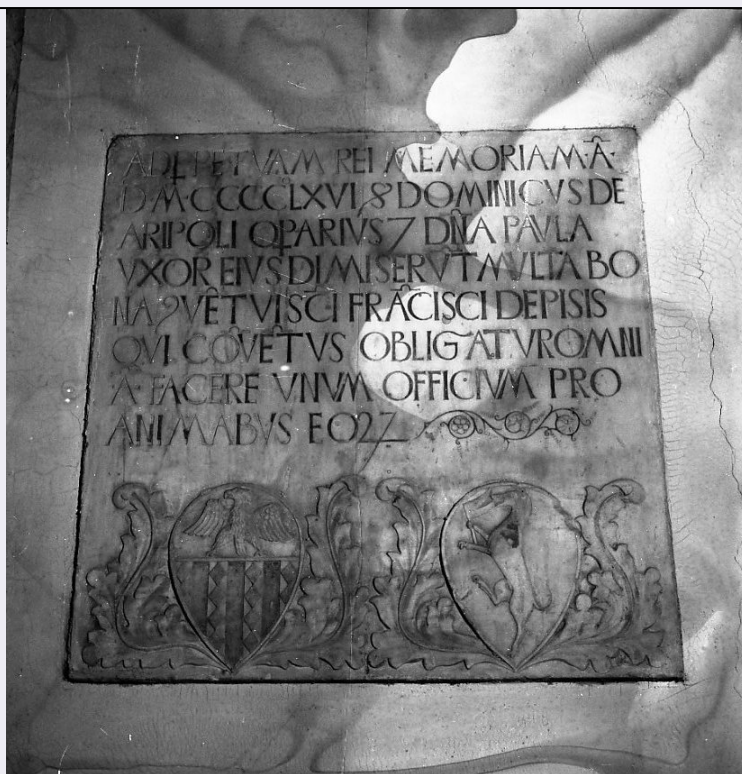 AD ꝑPETVAM REI MEMORIAM·Ā·
D·M·CCCCCLXVI 8 DOMINICVS DE
ARIPOLI OꝑARIVS 7 DN̄A PAVLA
VXOR EIVS DIMISERṼT MVLTA BO
NA 9VĒTVI SCI FRĀCISCI DE PISIS
QVI CŌVĒTVS OBLIGATVR OMNI
Ā·FACERE VNVM OFFICIVM PRO
ANIMABVS EOꝜ